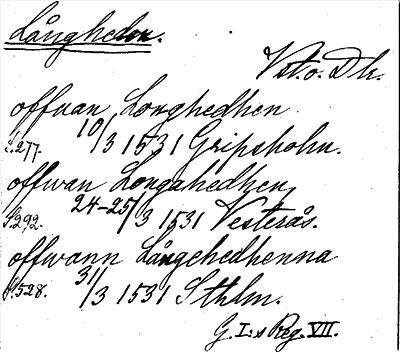 Långheden.
Vst. o. Dlr.
offuan Longhedhen
S. 277. 10/3 1531 Gripsholm.
offwan Longahedhen
S. 292. 24-25/3 1531 Vesterås.
offwann Långehedhenna
S. 528. 31/3 1531 Sthlm.
G. I:s Reg. VII.